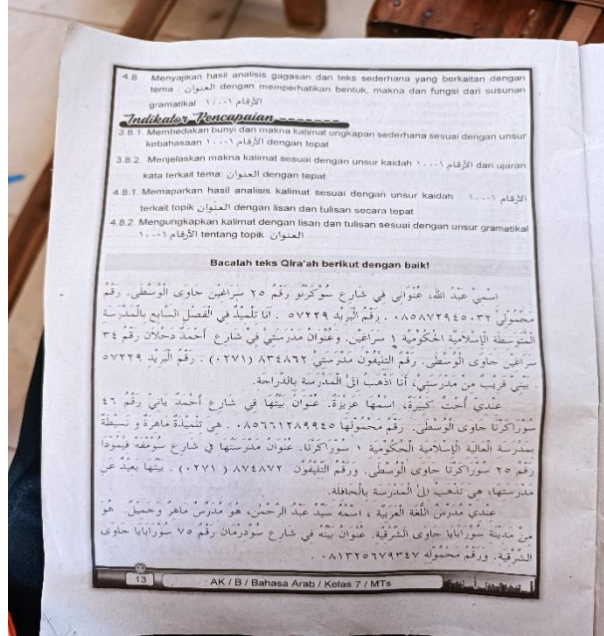 4.8 Menyajikan hasil analisis gagasan dari teks sederhana yang berkaitan dengan
tema : العنوان dengan memperhatikan bentuk, makna dan fungsi dari susunan
gramatikal الأرقام ١-١٠٠
Indikator Pencapaian
3.8.1. Membedakan bunyi dan makna kalimat ungkapan sederhana sesuai dengan unsur
kebahasaan الأرقام ١-١٠٠ dengan tepat
3.8.2. Menjelaskan makna kalimat sesuai dengan unsur kaidah الأرقام ١-١٠٠ dari ujaran
kata terkait tema: العنوان dengan tepat
4.8.1. Memaparkan hasil analisis kalimat sesuai dengan unsur kaidah الأرقام ١-١٠٠
terkait topik العنوان dengan lisan dan tulisan secara tepat
4.8.2. Mengungkapkan kalimat dengan lisan dan tulisan sesuai dengan unsur gramatikal
الأرقام ١-١٠٠ tentang topik العنوان
Bacalah teks Qira'ah berikut dengan baik!
اسمي عبد الله، عنواني في شارع سوكرنو رقم ٢٥ سراغين جاوى الوسطى. رقم
محمولي ٠٨٥٨٧٢٩٤٥٠٣٢. رقم البريد ٥٧٢٢٩. أنا تلميذ في الفصل السابع بالمدرسة
المتوسطة الإسلامية الحكومية ١ سراغين. وعنوان مدرستي في شارع أحمد دحلان رقم ٣٤
سراغين جاوى الوسطى. رقم التليفون مدرستي ٨٣٤٨٦٢ (٠٢٧١). رقم البريد ٥٧٢٢٩
. بيتي قريب من مدرستي، أنا أذهب إلى المدرسة بالدراجة.
عندي أخت كبيرة، اسمها عزيزة. عنوان بيتها في شارع أحمد ياني رقم ٤٦
سوراكرتا جاوى الوسطى. رقم محمولها ٠٨٥٦٦١٢٨٩٩٤٥. هي تلميذة ماهرة و نسيطة
بمدرسة العالية الإسلامية الحكومية ١ سوراكرتا. عنوان مدرستها في شارع سومفه فيمودا
رقم ٢٥ سوراكرتا جاوى الوسطى. ورقم التليفون ٨٧٤٨٧٢ (٠٢٧١). بيتها بعيد عن
مدرستها، هي تذهب إلى المدرسة بالحافلة.
عندي مدرس اللغة العربية، اسمه سيد عبد الرحمن، هو مدرس ماهر وجميل. هو
من مدينة سورابايا جاوى الشرقية. عنوان بيته في شارع سودرمان رقم ٧٥ سورابايا جاوى
الشرقية. ورقم محموله ٠٨١٣٢٥٦٧٩٣٤٧.
13 AK / B / Bahasa Arab / Kelas 7 / MTs